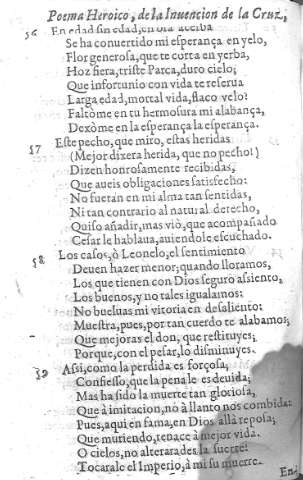 Poema Heroico, de la Inuencion de la Cruz,
56 En edad sin edad, en ora acerba
Se ha conuertido mi esperança en yelo,
Flor generosa, que te corta en yerba,
Hoz fiera, triste Parca, duro cielo;
Que infortunio con vida te reserua
Larga edad, mortal vida, flaco velo?
Faltòme en tu hermosura mi alabança,
Dexòme en la esperança la esperança.
57 Este pecho, que miro, estas heridas
(Mejor dixera herida, que no pecho!)
Dizen honrosamente recibidas,
Que aueis obligaciones satisfecho:
No fueran en mi alma tan sentidas,
Ni tan contrario al natural derecho,
Quiso añadir, mas viò, que acompañado
Cesar le hablaua, auiendole escuchado.
58 Los casos, ò Leonelo, el sentimiento
Deuen hazer menor; quando lloramos,
Los que tienen con Dios seguro asiento,
Los buenos, y no tales igualamos:
No bueluas mi vitoria en desaliento:
Muestra, pues, por tan cuerdo te alabamos,
Que mejoras el don, que restituyes,
Porque, con el pesar, lo disminuyes.
59 Assi, como la perdida es forçosa,
Confiesso, que la pena le es deuida;
Mas ha sido la muerte tan gloriosa,
Que à imitacion, no à llanto nos combida:
Pues, aqui en fama, en Dios allà reposa;
Que muriendo, renace à mejor vida.
O cielos, no alterarades la suerte!
Tocarale el Imperio, à mi su muerte.
En-